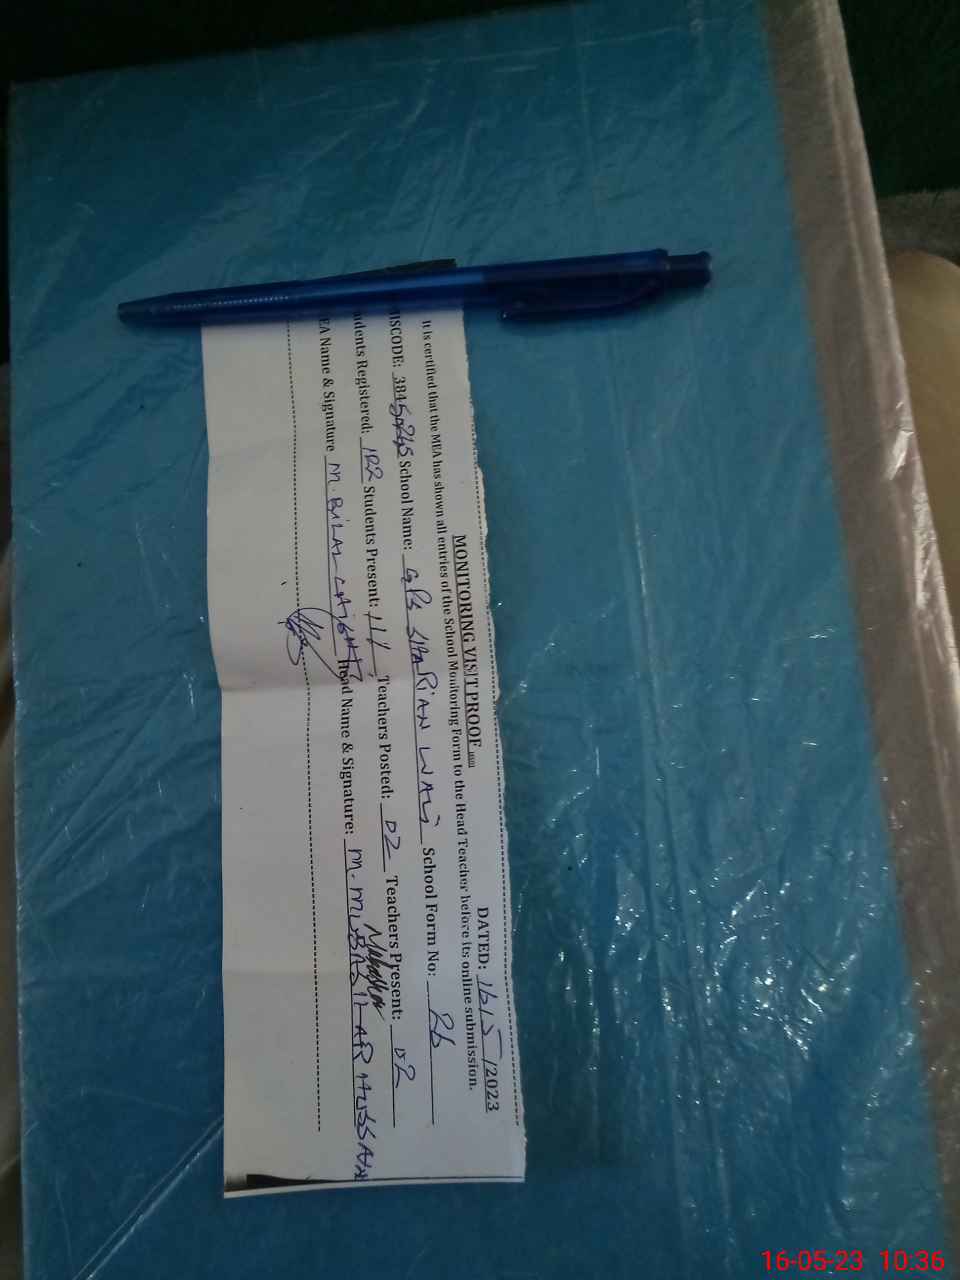 MONITORING VISIT PROOF DATED: 16/5/2023
It is certified that the MEA has shown all entries of the School Monitoring Form to the Head Teacher before its online submission.
MISCODE: 384 School Name: GPS WALI School Form No: 26
udents Registered: 122 Students Present: 111 Teachers Posted: 02 Teachers Present: 02
EA Name & Signature M. BILAL Head Name & Signature: M. HUSSAIN
16-05-23 10:36